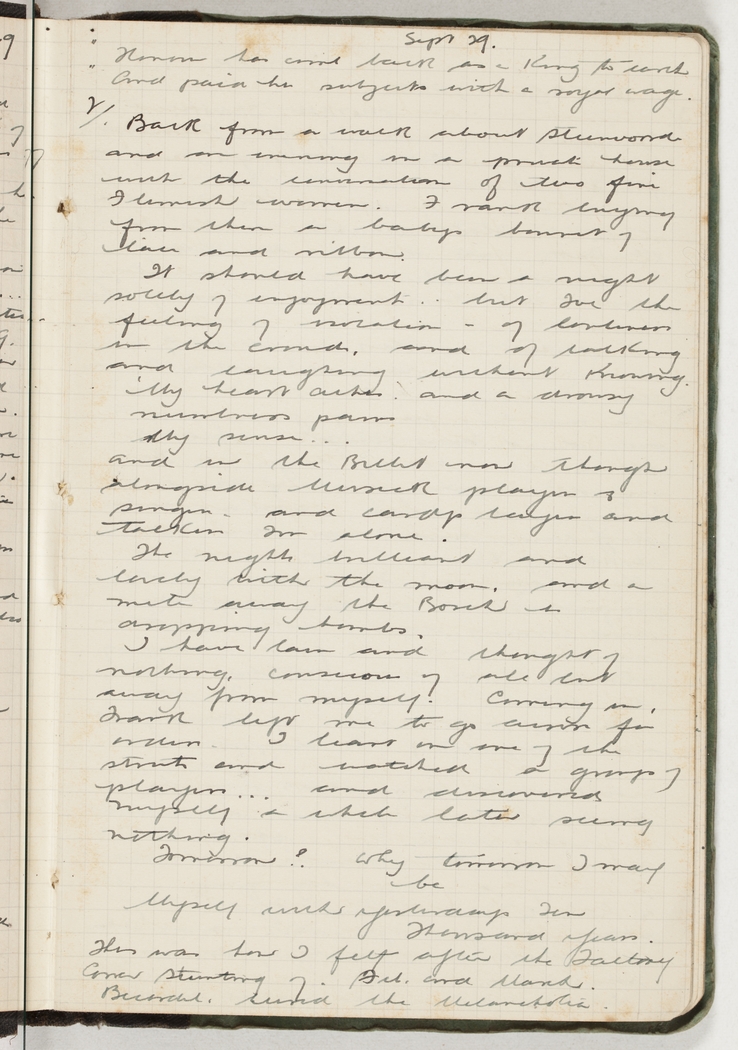 Sept 29.
" Honour has come back as a King to earth
" And paid his subjects with a royal wage.
2/. Back from a walk about Steenvoorde
and an evening in a private house
with the conversation of two fine
Flemish women. Frank buying
from them a babys bonnet of
lace and ribbon.
It should have been a night
solely of enjoyment .. but I've the
feeling of isolation - of loneliness
in the crowd, and of talking
and laughing without knowing.
'My heart aches: and a drowsy
numbness pains
My sense...
and in the Billet now though
alongside Musick players &
singers. and cards players and
talkers I'm alone.
The nights brilliant and
lovely with the moon, and a
mile away the Bosch is
dropping bombs.
I have lain and thought of
nothing, conscious of all but
away from myself. Coming in,
Frank left me to go across for
orders. I leant on one of the
struts and watched a group of
players... and discovered
myself a while later seeing
nothing.
Tomorrow?. Why tomorrow I may
be
Myself with yesterdays Ten
Thousand Years.
This was how I felt after the Factory
Corner Stunting of. Feb. and March.
Becordel. cured the Melancholia.